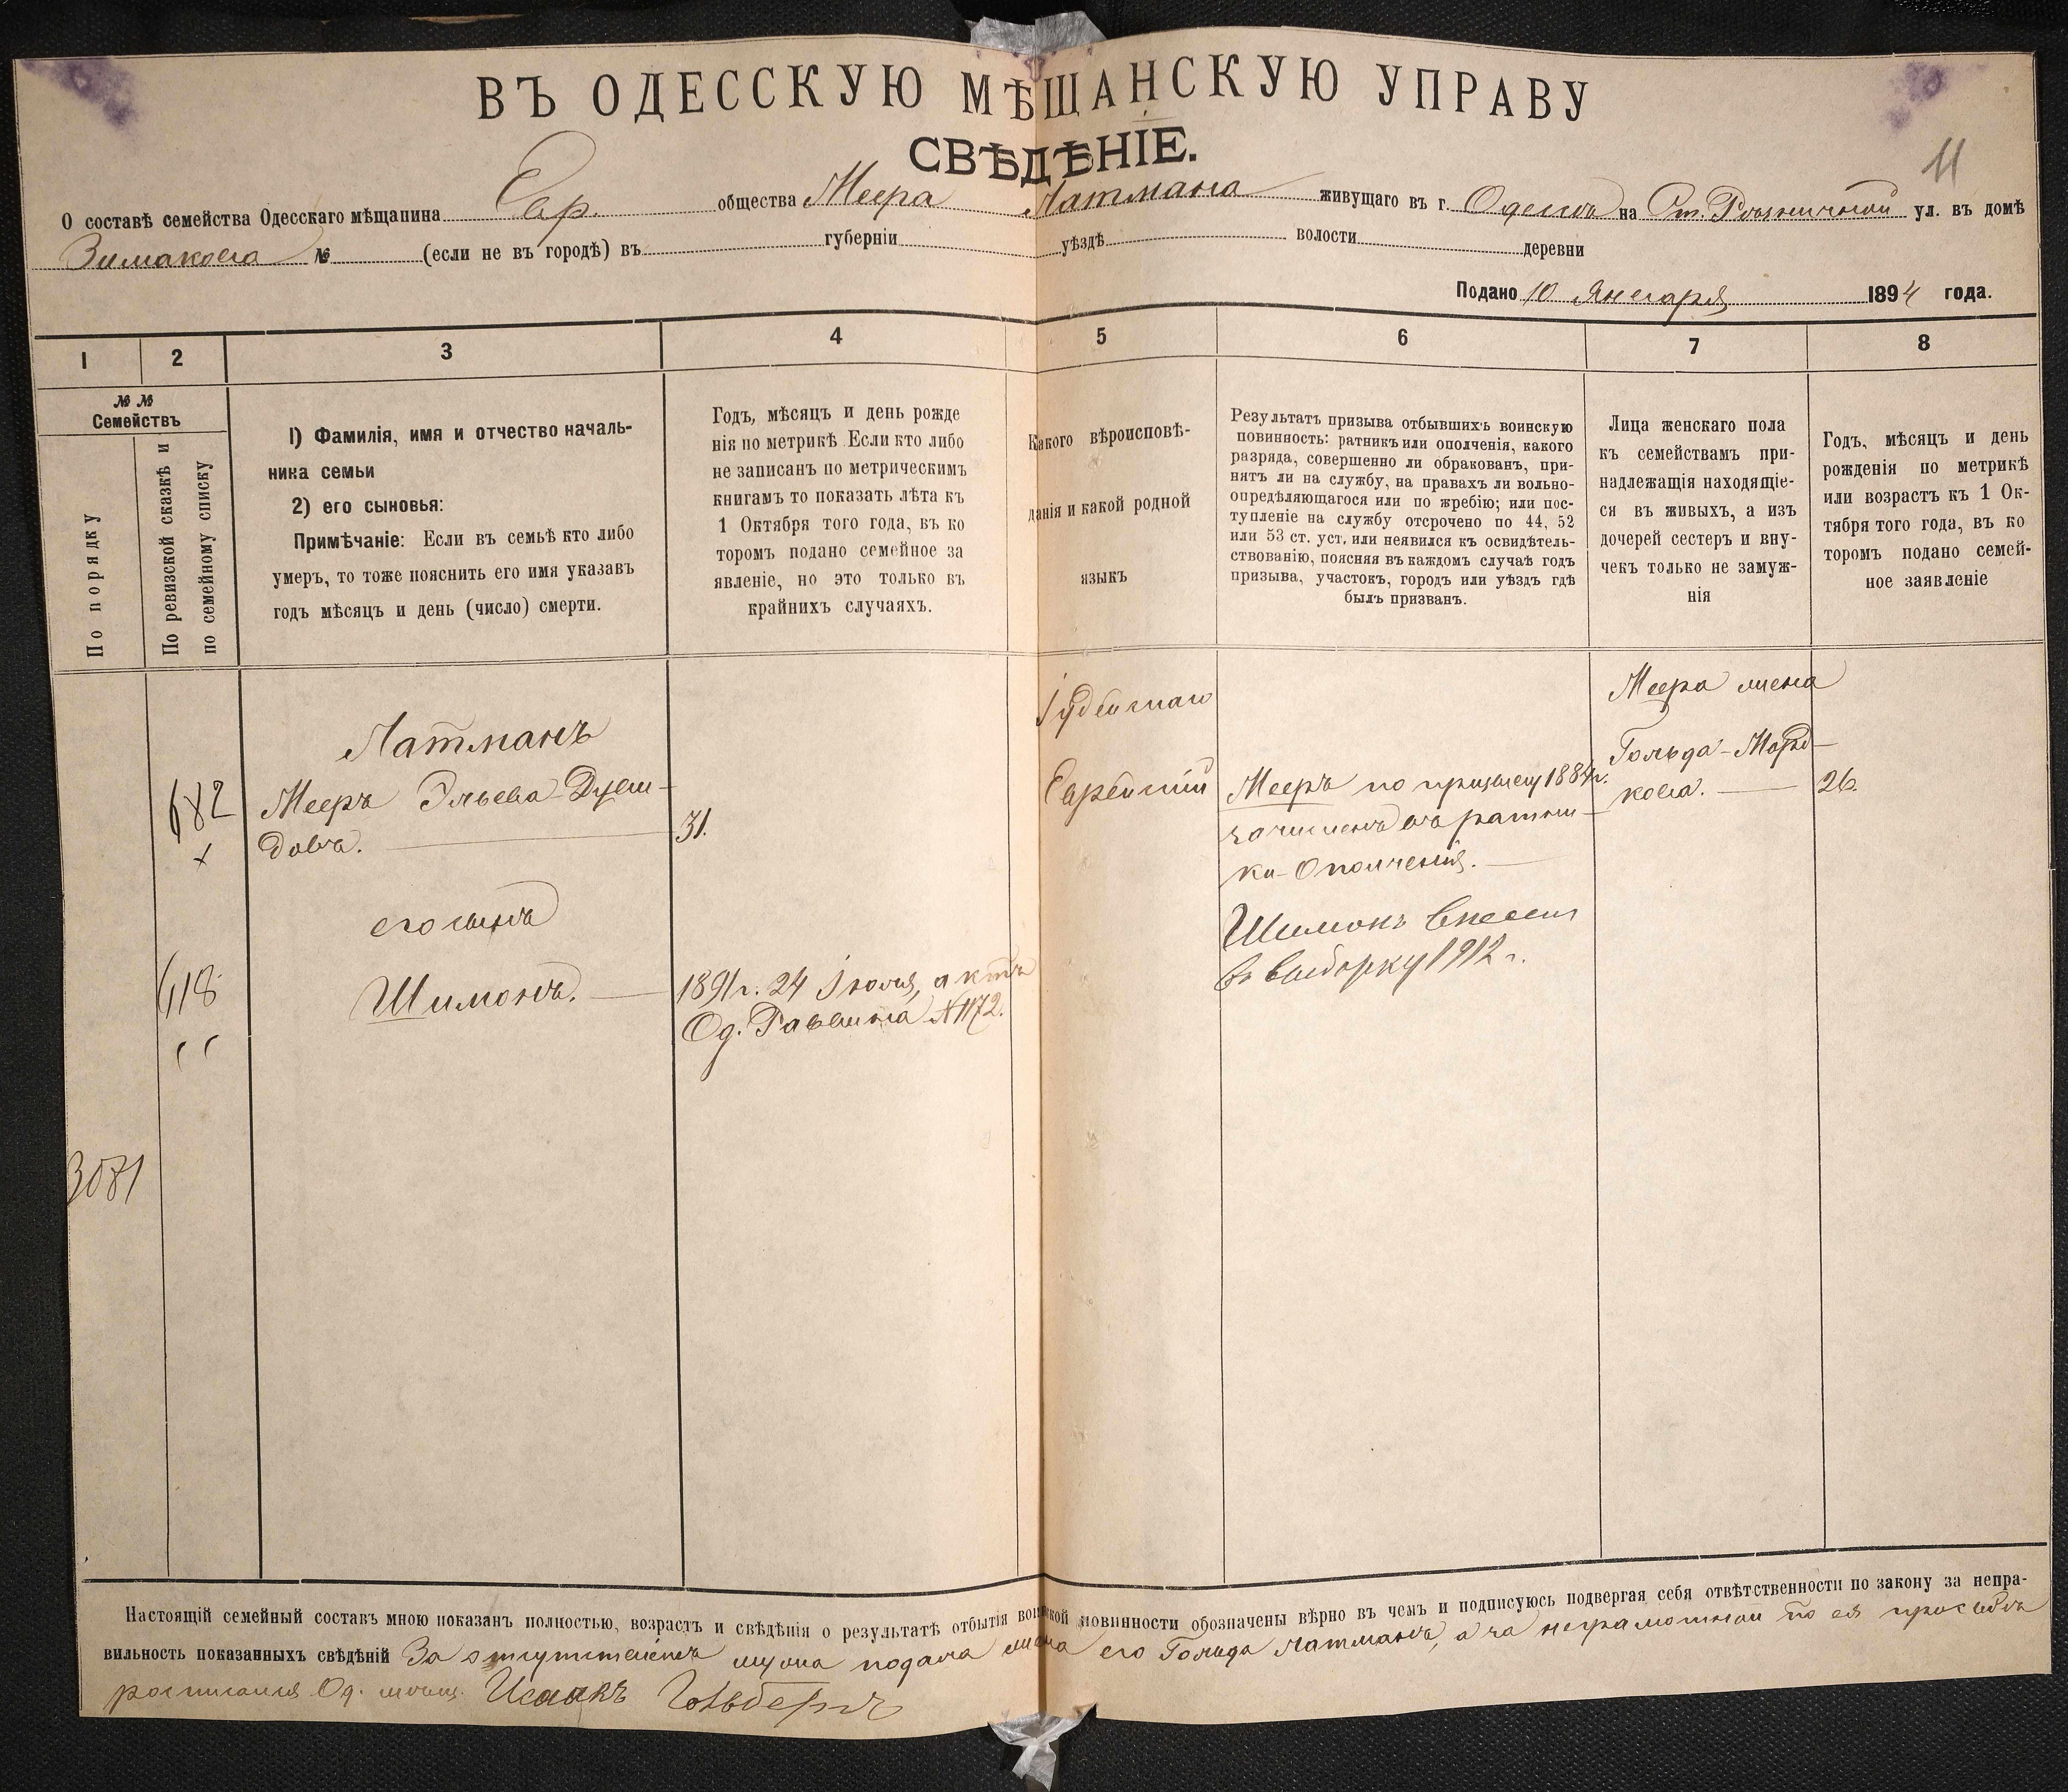 ВЪ ОДЕССКУЮ МѢЩАНСКУЮ УПРАВУ
СВѢДѢНІЕ.
11
О составѣ семейства Одесскаго мѣщанина Евр. общества Меера Латмана живущаго въ г. Одессѣ на Ст. Рѣзничной ул. въ домѣ
№ (если не въ городѣ) въ губерніи уѣздѣ волости деревни
Подано 10 Января 1894 года.
1 2 3 4 5 6 7 8
№ №
Семействъ
По порядку
По ревизской сказкѣ и
по семейному списку
1) Фамилія, имя и отчество началь-
ника семьи
2) его сыновья:
Примѣчаніе: Если въ семьѣ кто либо
умеръ, то тоже пояснить его имя указавъ
годъ мѣсяцъ и день (число) смерти.
Годъ, мѣсяцъ и день рожде
нія по метрикѣ Если кто либо
не записанъ по метрическимъ
книгамъ то показать лѣта къ
1 Октября того года, въ ко
торомъ подано семейное за
явленіе, но это только въ
крайнихъ случаяхъ.
Какого вѣроисповѣ-
данія и какой родной
языкъ
Результатъ призыва отбывшихъ воинскую
повинность: ратникъ или ополченія, какого
разряда, совершенно ли обракованъ, при-
нятъ ли на службу, на правахъ ли вольно-
опредѣляющагося или по жребію; или пос-
тупленіе на службу отсрочено по 44, 52
или 53 ст. уст. или неявился къ освидѣтель-
ствованію, поясняя въ каждомъ случаѣ годъ
призыва, участокъ, городъ или уѣздъ гдѣ
былъ призванъ.
Лица женскаго пола
къ семействамъ при-
надлежащія находящіе-
ся въ живыхъ, а изъ
дочерей сестеръ и вну-
чекъ только не замуж-
нія
Годъ, мѣсяцъ и день
рожденія по метрикѣ
или возрастъ къ 1 Ок-
тября того года, въ ко
торомъ подано семей-
ное заявленіе
682
х
618
3081
Латманъ
Мееръ Эльевъ-
довъ.
его сынъ
Шимонъ.
31.
1891г. 24 Іюля, актъ
Од. Раввина №1172.
Іудейскаго
Еврейскій
Мееръ по призыву 1884г.
зачисленъ въ ратни-
ки Ополченія.
Шимонъ внесенъ
въ выборку 1912 г.
Меера жена
Гольда-Морд-
кова.
26.
Настоящій семейный составъ мною показанъ полностью, возрастъ и свѣдѣнія о результатѣ отбытія воинской повинности обозначены вѣрно въ чемъ и подписуюсь подвергая себя отвѣтственности по закону за непра-
вильность показанныхъ свѣдѣній За отсутствіемъ мужа подала жена его Гольда Латманъ, а за неграмотной по ея просьбѣ
росписался Од. мѣщ. Исаакъ Гольбергъ